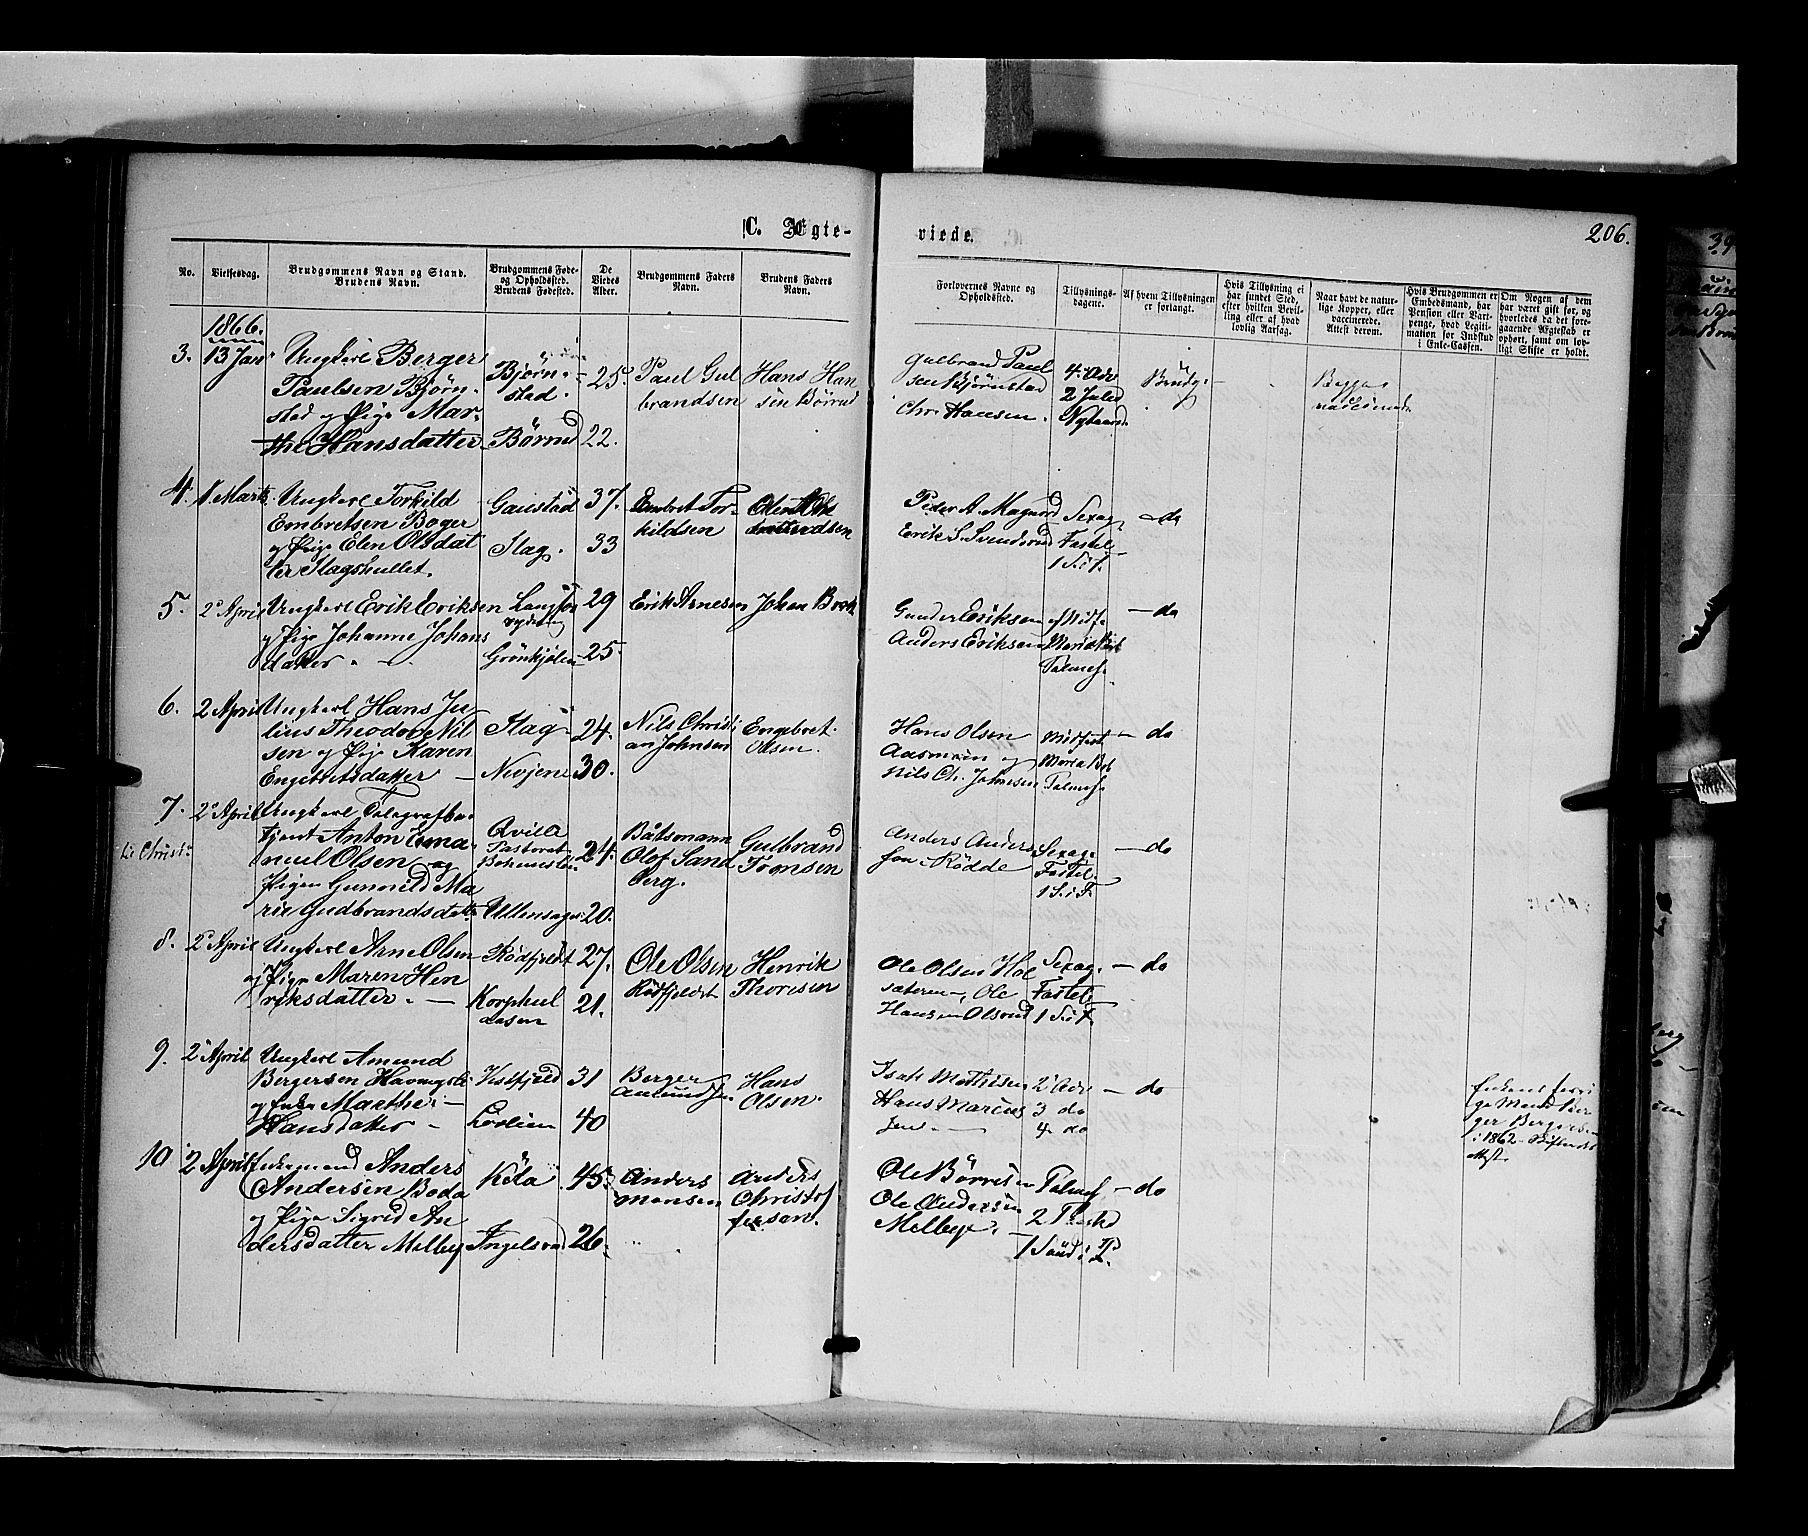 C. Ægte-
viede.
206.
No.
Vielsesdag.
Brudgommens Navn og Stand.
Brudens Navn.
Brudgommens Føde-
og Opholdssted.
Brudens Fødested.
De
Viedes
Alder.
Brudgommens Faders
Navn.
Brudens Faders
Navn.
Forlovernes Navne og
Opholdssted.
Tillysnings-
dagene.
Af hvem Tillysningen
er forlangt.
Hvis Tillysning ei
har fundet Sted,
efter hvilken Bevil-
ling eller af hvad
lovlig Aarsag.
Naar havt de natur-
lige Kopper, eller
vaccinerede.
Attest derom.
Hvis Brudgommen er
Embedsmand, har
Pension eller Vart-
penge, hvad Legiti-
mation for Indskud
i Enke-Cassen.
Om Nogen af dem
har været gift før, og
hvorledes da det fore-
gaaende Ægteskab er
ophørt, samt om lov-
ligt Skifte er holdt.
1866.
3.
13 Jan
Ungkarl Berger
Paulsen Bjørn-
stad og Pige Mar-
the Hansdatter
Bjørn-
stad.
Børrud
25.
22.
Paul Gul
brandsen
Hans Han
sen Børrud
Gulbrand Paul
sen Bjørnstad
Chr. Hansen.
4. Adv
2 Juled
Nytaarsd
Brudg
Begge
4.
1. Marts
Ungkarl Torkild
Embretsen Boger
og Pige Elen Olsdat
ter Slagshullet.
Gaustad
Slag.
37.
33
Embret Tor-
kildsen
Peder A. Magnord
Erik S. Svendsrud
Sexag.
Fastel.
1 S. i F.
— do
5.
2 April
Ungkarl Erik Eriksen
og Pige Johanne Johans
datter.
Grønkjølen
29
25.
Erik Arnesen
Johan
Gunder Eriksen
Anders Eriksen
Midf.
Maria
Palmes.
— do
6.
2 April
Ungkarl Hans Ju
lius Theodor Nil
sen og Pige Karen
Engebretsdatter
Slag
24.
30.
Nils Christi
an Johnsen
Engebret
Olsen.
Hans Olsen
Aasmoen og
Nils Ch. Johnsen
Midfast
Maria
Palmes.
— do
7.
2 April
Ungkarl Telegrafbe
tjent Anton Ema
nuel Olsen og
Pigen Gunnild Ma
rie Gudbrandsdatt
Qville
Pastorat
Bohuslen
Ullensager
24.
20.
Båtsmann
Olof Sand
berg.
Gulbrand
Tomsen
Anders Anders
son Rødde
Sexag.
Fastel.
1 S. i F.
— do
8.
2 April
Ungkarl Arne Olsen
og Pige Maren Hen
riksdatter.
Rødfjeldt
Korphul
aasen
27.
21.
Ole Olsen
Rødfjeldet
Henrik
Thoresen
Ole Olsen Hol
sæteren, Ole
Hansen Olsrud
Sexag.
Fastel.
1 S. i F.
— do
9.
2 April
Ungkarl Amund
Bergersen
og Enke Marthe
Hansdatter
Kvistfjeld
Lovlien
31
40
Berger
Amundsen
Hans
Olsen.
Isak Mathisen
Hans Marcus
sen
2 Adv
3 do
4 do
— do
Enkens forri
ge Mand Ber
ger Bergersen
i 1862.
10
2 April
Enkemand Anders
Andersen Boda
og Pige Sigrid An
dersdatter Melby
Køla
Ingelsrud
45.
26.
Anders
Monsen
Anders
Christof
fersen.
Ole Børresen
Ole Andersen
Melbye.
Palmes
— do